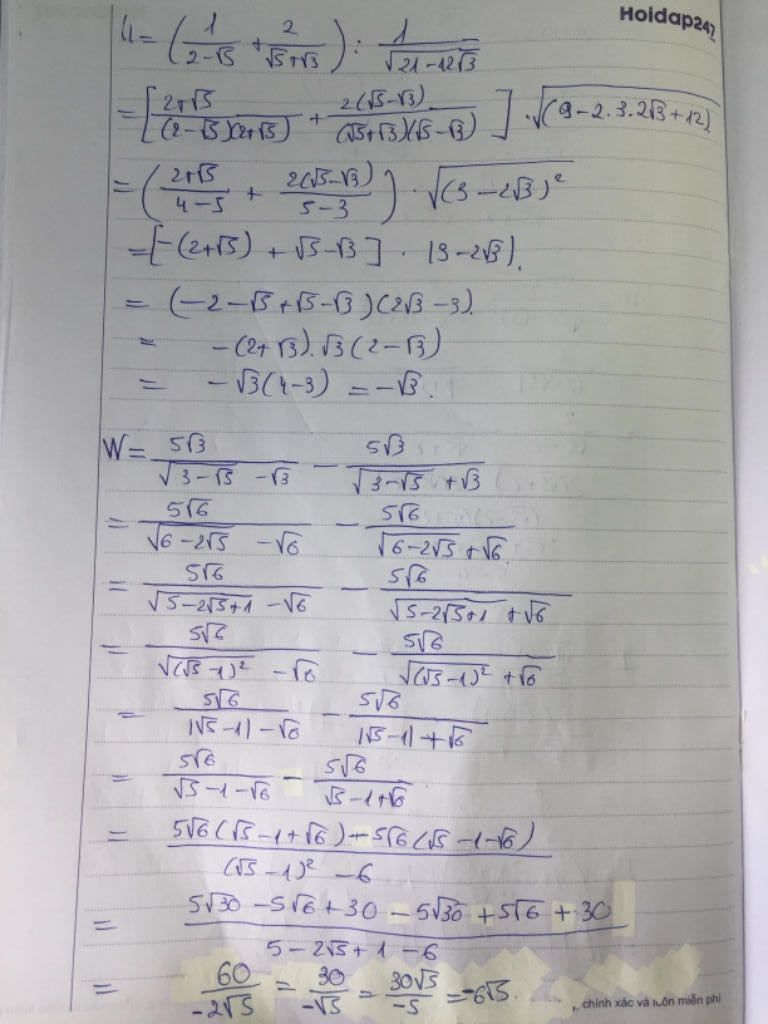 Hoidap247
U = (1/(2-√5) + 2/(√5+√3)) : 1/√(21-12√3)
= [(2+√5)/((2-√5)(2+√5)) + 2(√5-√3)/((√5+√3)(√5-√3))] . √(9-2.3.2√3+12)
= ((2+√5)/(4-5) + 2(√5-√3)/(5-3)) . √(3-2√3)²
= [-(2+√5) + √5-√3] . |3-2√3|.
= (-2-√5+√5-√3)(2√3-3).
= -(2+√3).√3(2-√3)
= -√3(4-3) = -√3.
W = 5√3/(√(3-√5) -√3) - 5√3/(√(3-√5) +√3)
= 5√6/(√(6-2√5) -√6) - 5√6/(√(6-2√5) +√6)
= 5√6/(√(5-2√5+1) -√6) - 5√6/(√(5-2√5+1) +√6)
= 5√6/(√(√5-1)² -√6) - 5√6/(√(√5-1)² +√6)
= 5√6/(|√5-1|-√6) - 5√6/(|√5-1|+√6)
= 5√6/(√5-1-√6) - 5√6/(√5-1+√6)
= (5√6(√5-1+√6) - 5√6(√5-1-√6))/((√5-1)² -6)
= (5√30 -5√6 +30 -5√30 +5√6 +30)/(5-2√5+1-6)
= 60/(-2√5) = 30/(-√5) = 30√5/(-5) = -6√5.
, chính xác và luôn miễn phí